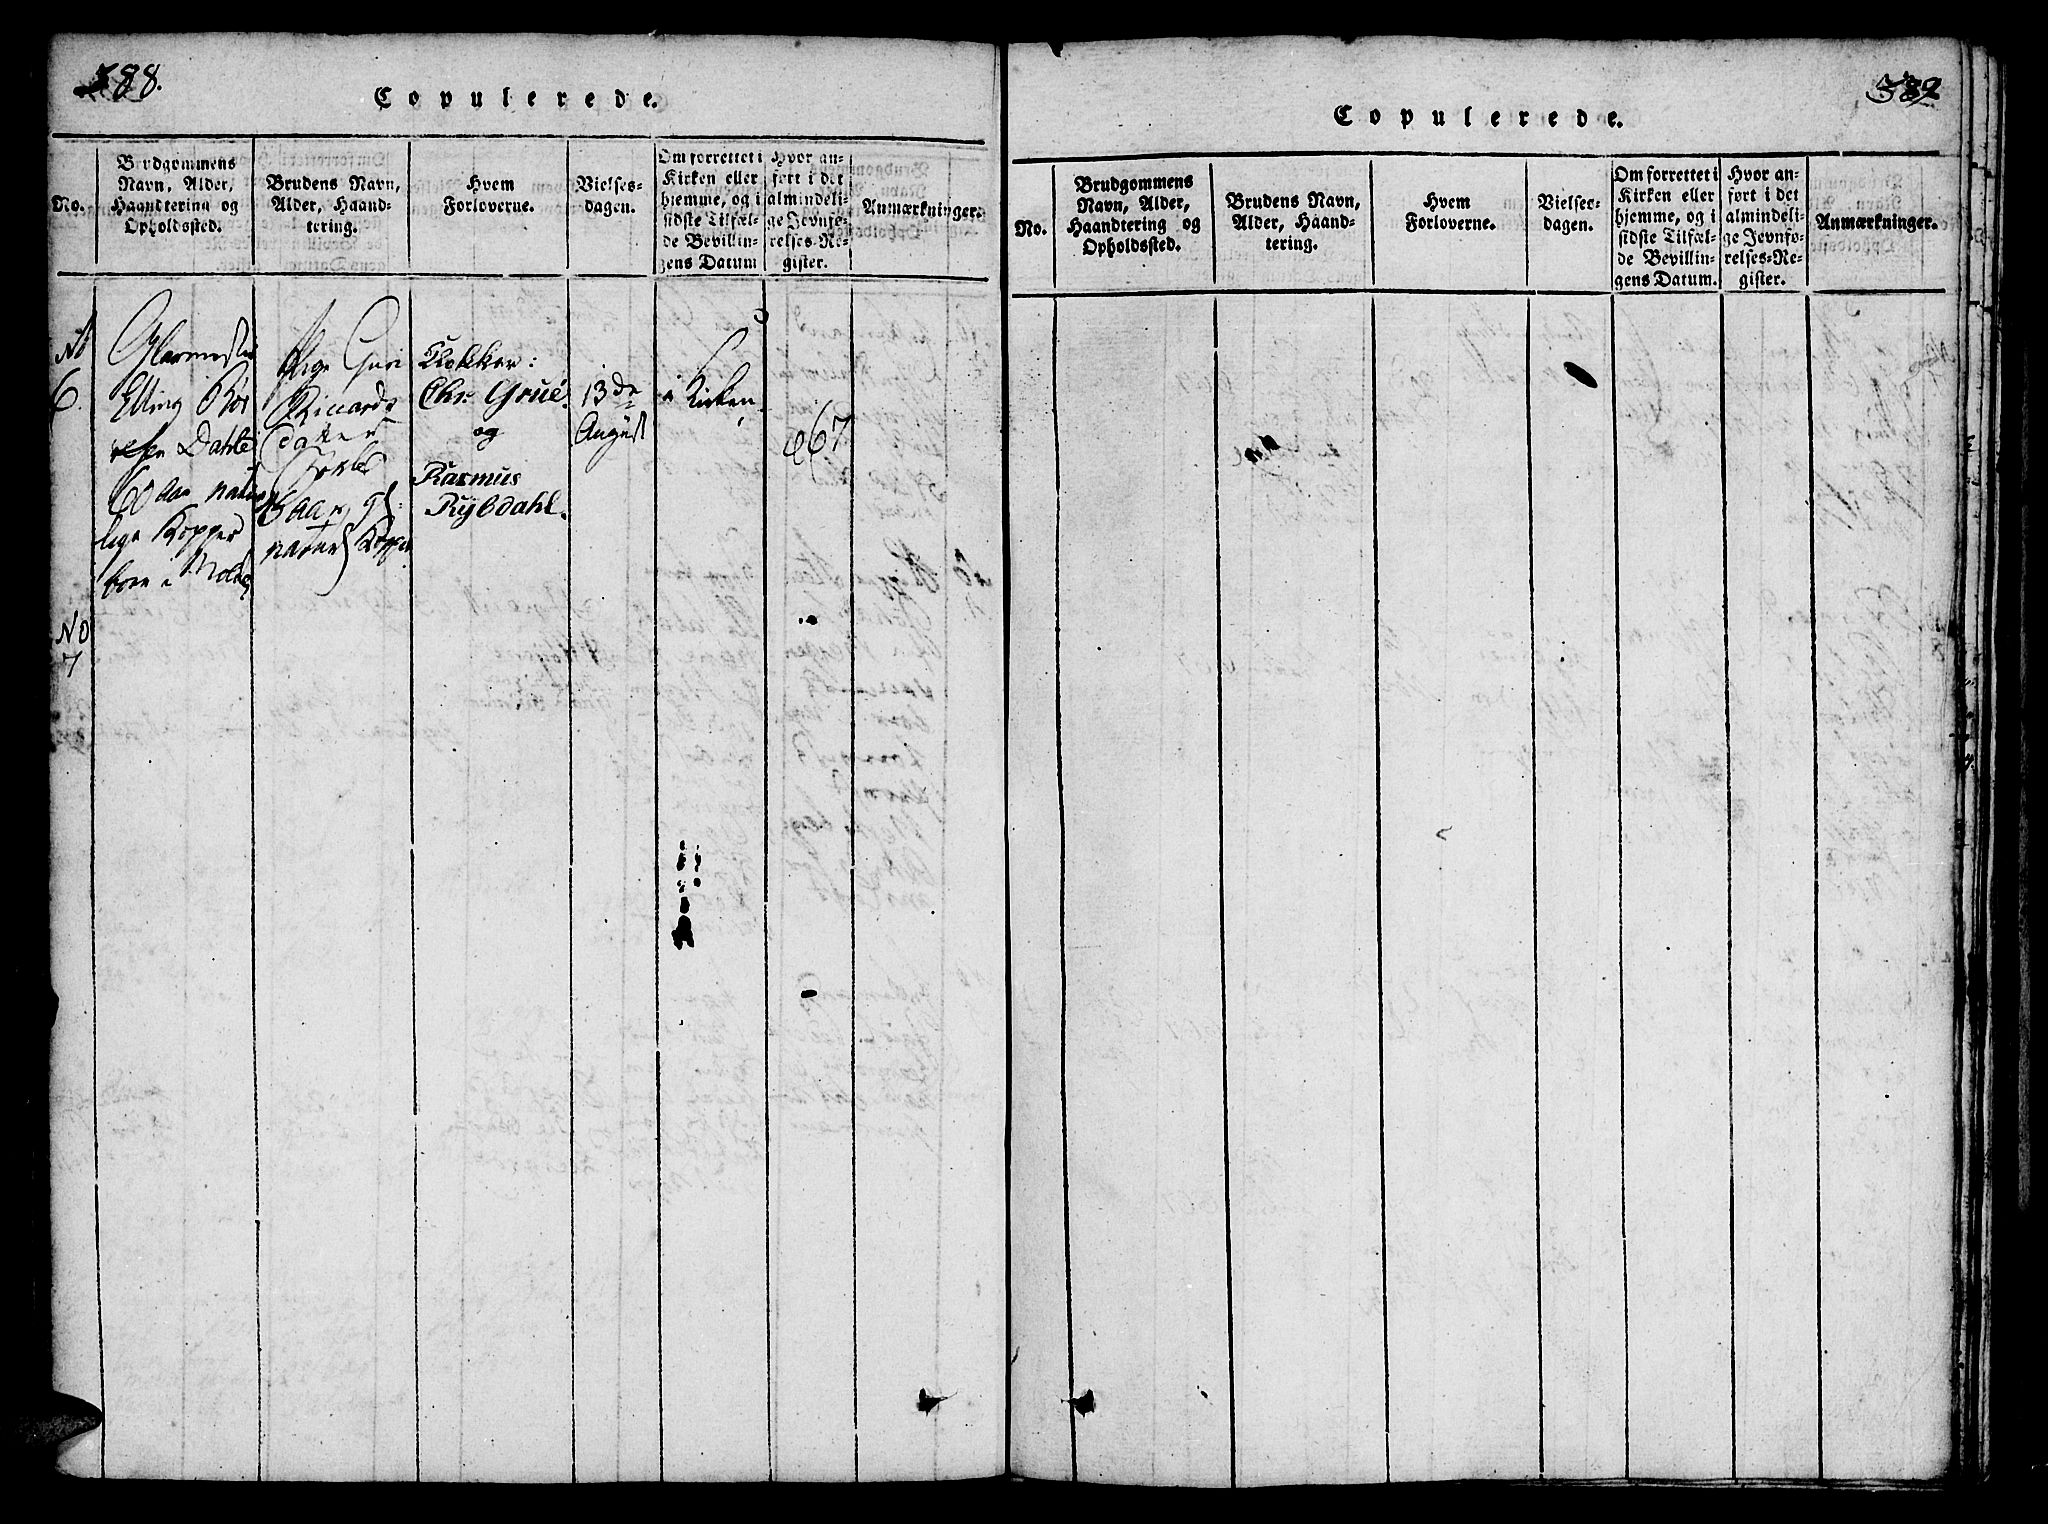 388.
Copulerede.
No.
Brudgommens
Navn, Alder,
Haandtering og
Opholdssted.
Brudens Navn,
Alder, Haand-
tering.
Hvem
Forloverne.
Vielses-
dagen.
Om forrettet i
Kirken eller
hjemme, og i
sidste Tilfæl-
de Bevillin-
gens Datum
Hvor an-
ført i det
almindeli-
ge Jevnfø-
relses-Re-
gister.
Anmærkninger.
No
6.
Glarmester
Elling
Dahle
60 aar
lige Kopper
born i Molde
Pige Guri
Riccards
datter
aar
Kopper
Klokker:
Chr. Grüe.
og
Rasmus
Rÿbdahl.
13de
August
i Kirken,
667
No
7
389
Copulerede.
No.
Brudgommens
Navn, Alder,
Haandtering og
Opholdssted.
Brudens Navn,
Alder, Haand-
tering.
Hvem
Forloverne.
Vielses-
dagen.
Om forrettet i
Kirken eller
hjemme, og i
sidste Tilfæl-
de Bevillin-
gens Datum.
Hvor an-
ført i det
almindeli-
ge Jevnfø-
relses-Re-
gister.
Anmærkninger.